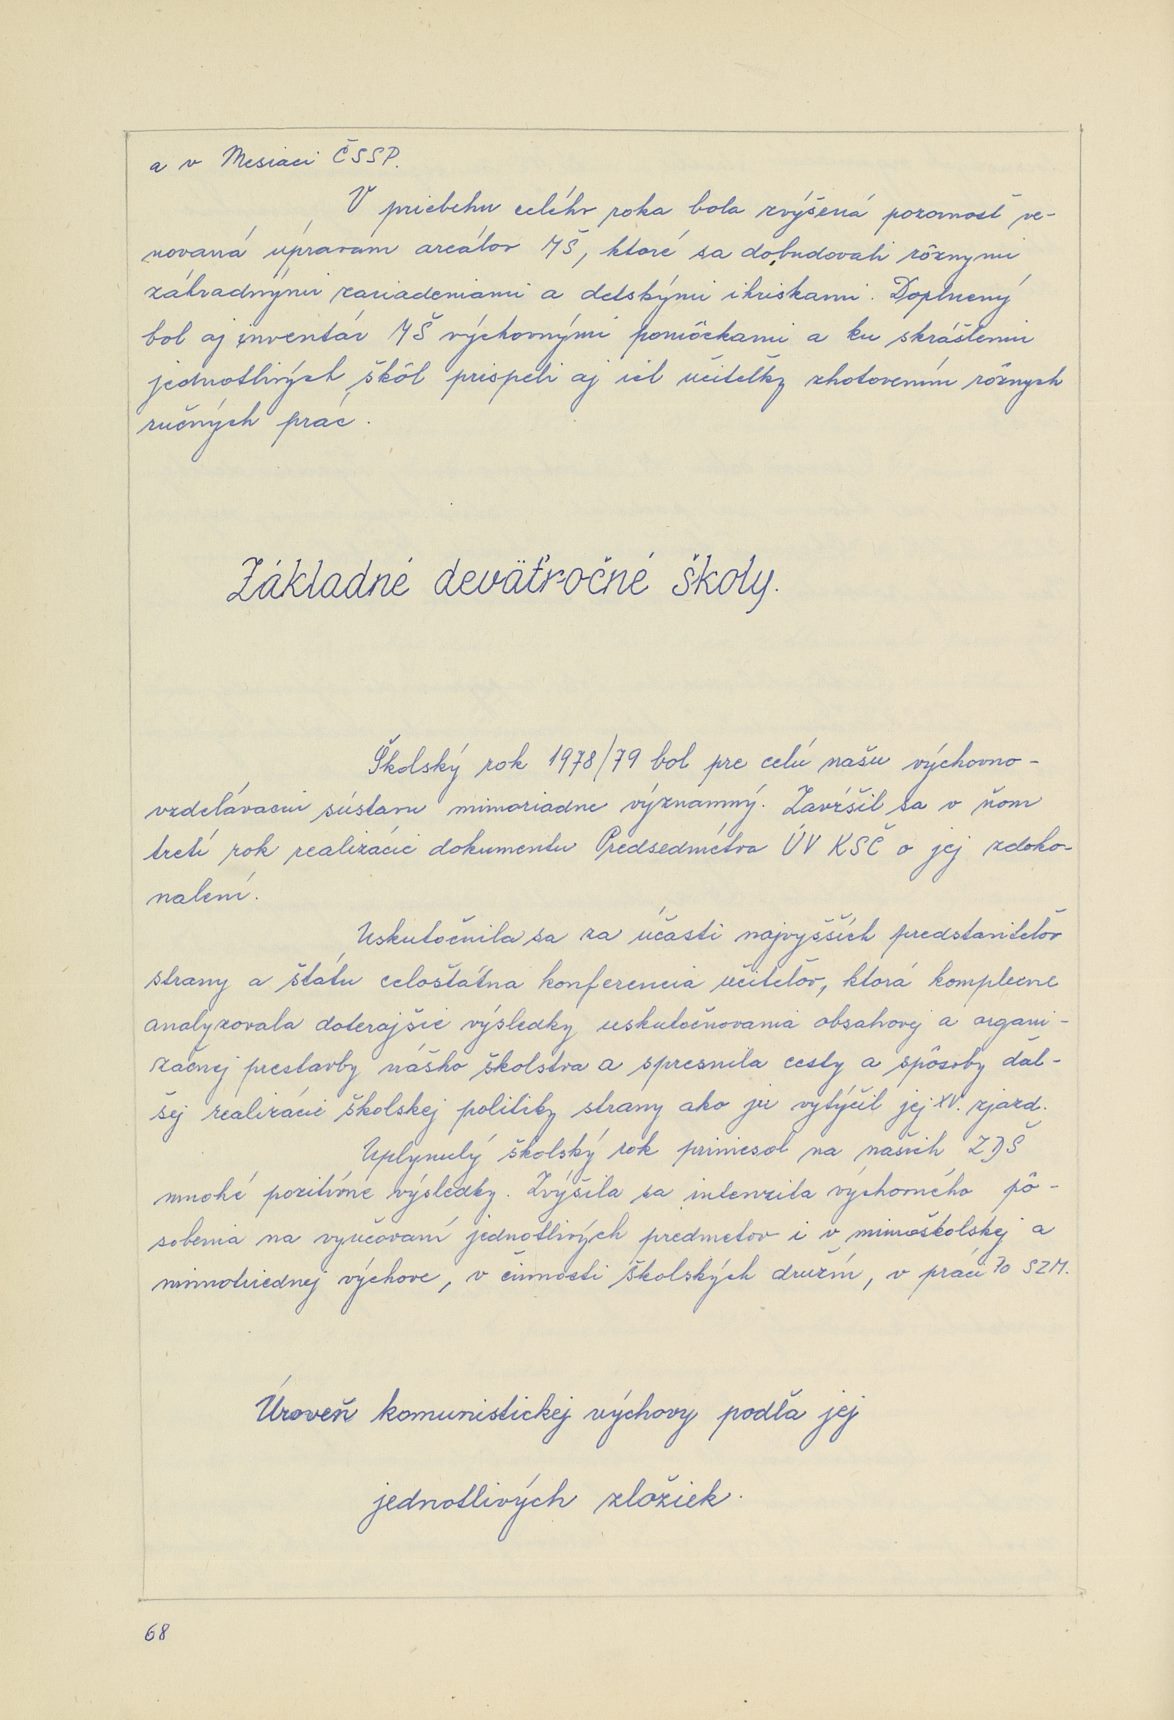 a v Mesiaci ČSSP.
V priebehu celého roka bola zvýšená pozornosť ve-
novaná úpravám areálov MŠ, ktoré sa dobudovali rôznymi
záhradnými zariadeniami a detskými ihriskami. Doplnený
bol aj inventár MŠ výchovnými pomôckami a ku skrášleniu
jednotlivých škôl prispeli aj ich učiteľky zhotovením rôznych
ručných prác.
Základné deväťročné školy.
Školský rok 1978/79 bol pre celú našu výchovno-
vzdelávaciu sústavu mimoriadne významný. Zavŕšil sa v ňom
tretí rok realizácie dokumentu Predsedníctva ÚV KSČ o jej zdoko-
nalení.
Uskutočnila sa za účasti najvyšších predstaviteľov
strany a štátu celoštátna konferencia učiteľov, ktorá komplexne
analyzovala doterajšie výsledky uskutočňovania obsahovej a organi-
začnej prestavby nášho školstva a spresnila cesty a spôsoby ďal-
šej realizácie školskej politiky strany ako ju vytýčil jej XV. zjazd.
Uplynulý školský rok priniesol na našich ZDŠ
mnohé pozitívne výsledky. Zvýšila sa intenzita výchovného pô-
sobenia na vyučovaní jednotlivých predmetov i v mimoškolskej a
mimotriednej výchove, v činnosti školských družín, v práci PO SZM.
Úroveň komunistickej výchovy podľa jej
jednotlivých zložiek.
68